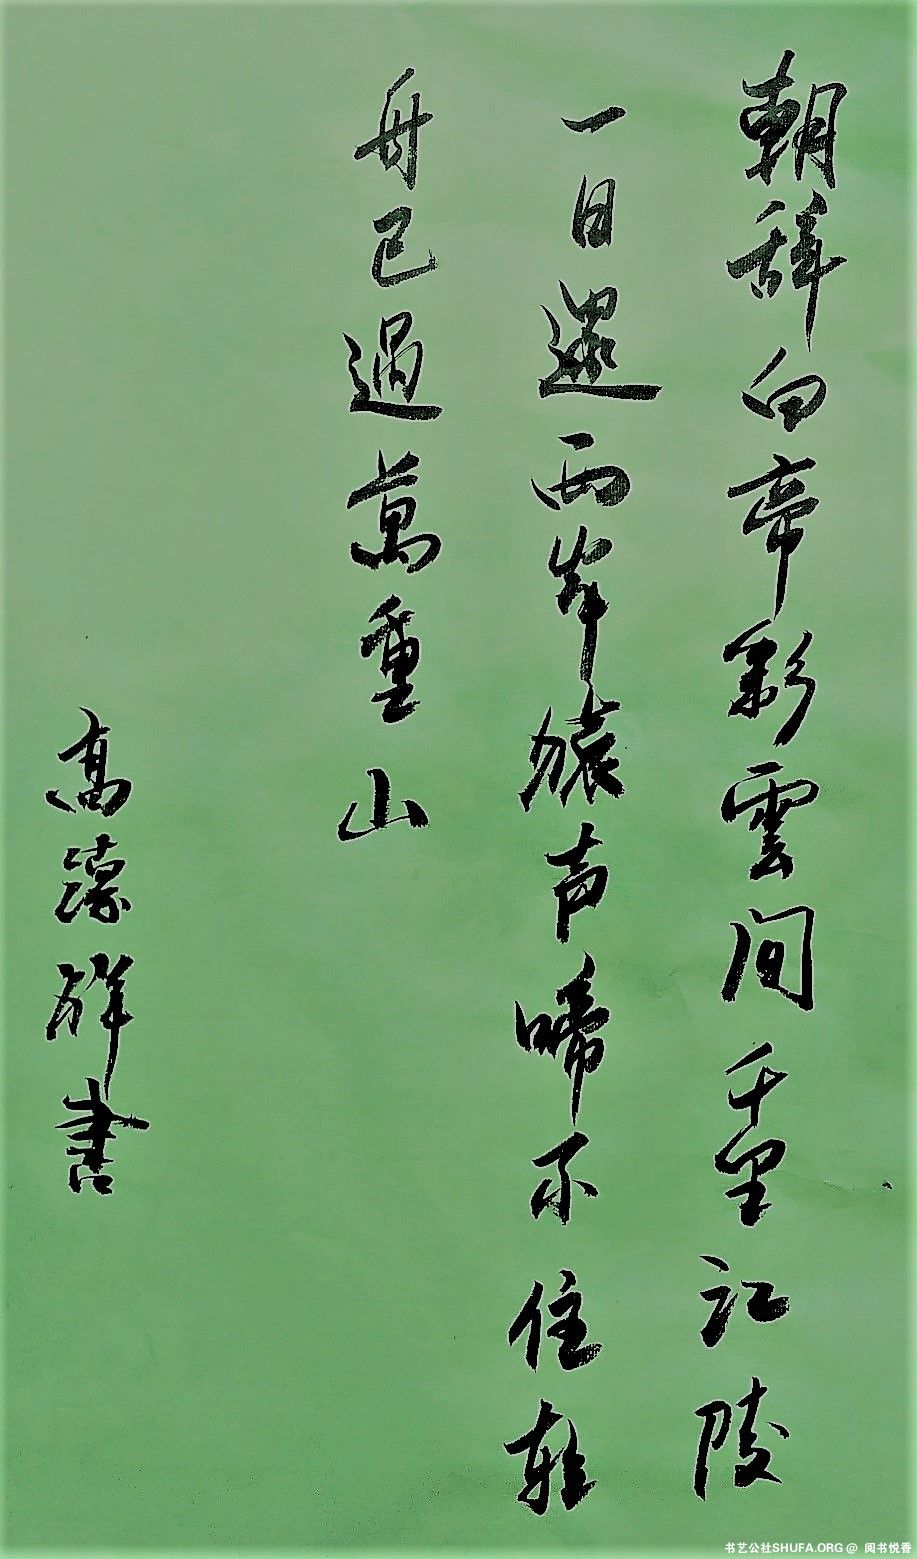 朝辞白帝彩雲间千里江陵
一日還两岸猿声啼不住輕
舟已過萬重山
高德祥書
书艺公社SHUFA.ORG @ 阅书悦香